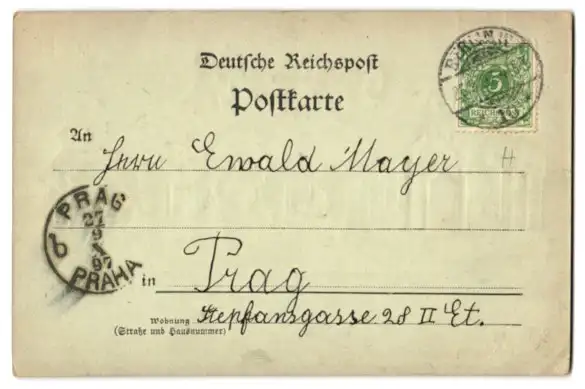 Deutsche Reichspost
Postkarte
BERLIN
5
REICHSPOST
An
Herrn Ewald Mayer
H
PRAG
27
9
97
PRAHA
b
in Prag
Wohnung Stepfansgasse 28 II Et.
(Straße und Hausnummer)